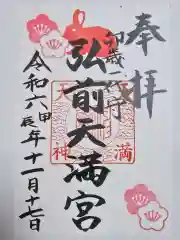 奉拝
卯歳一代守
弘前天満宮
天満
神
令和六甲辰年十一月十七日